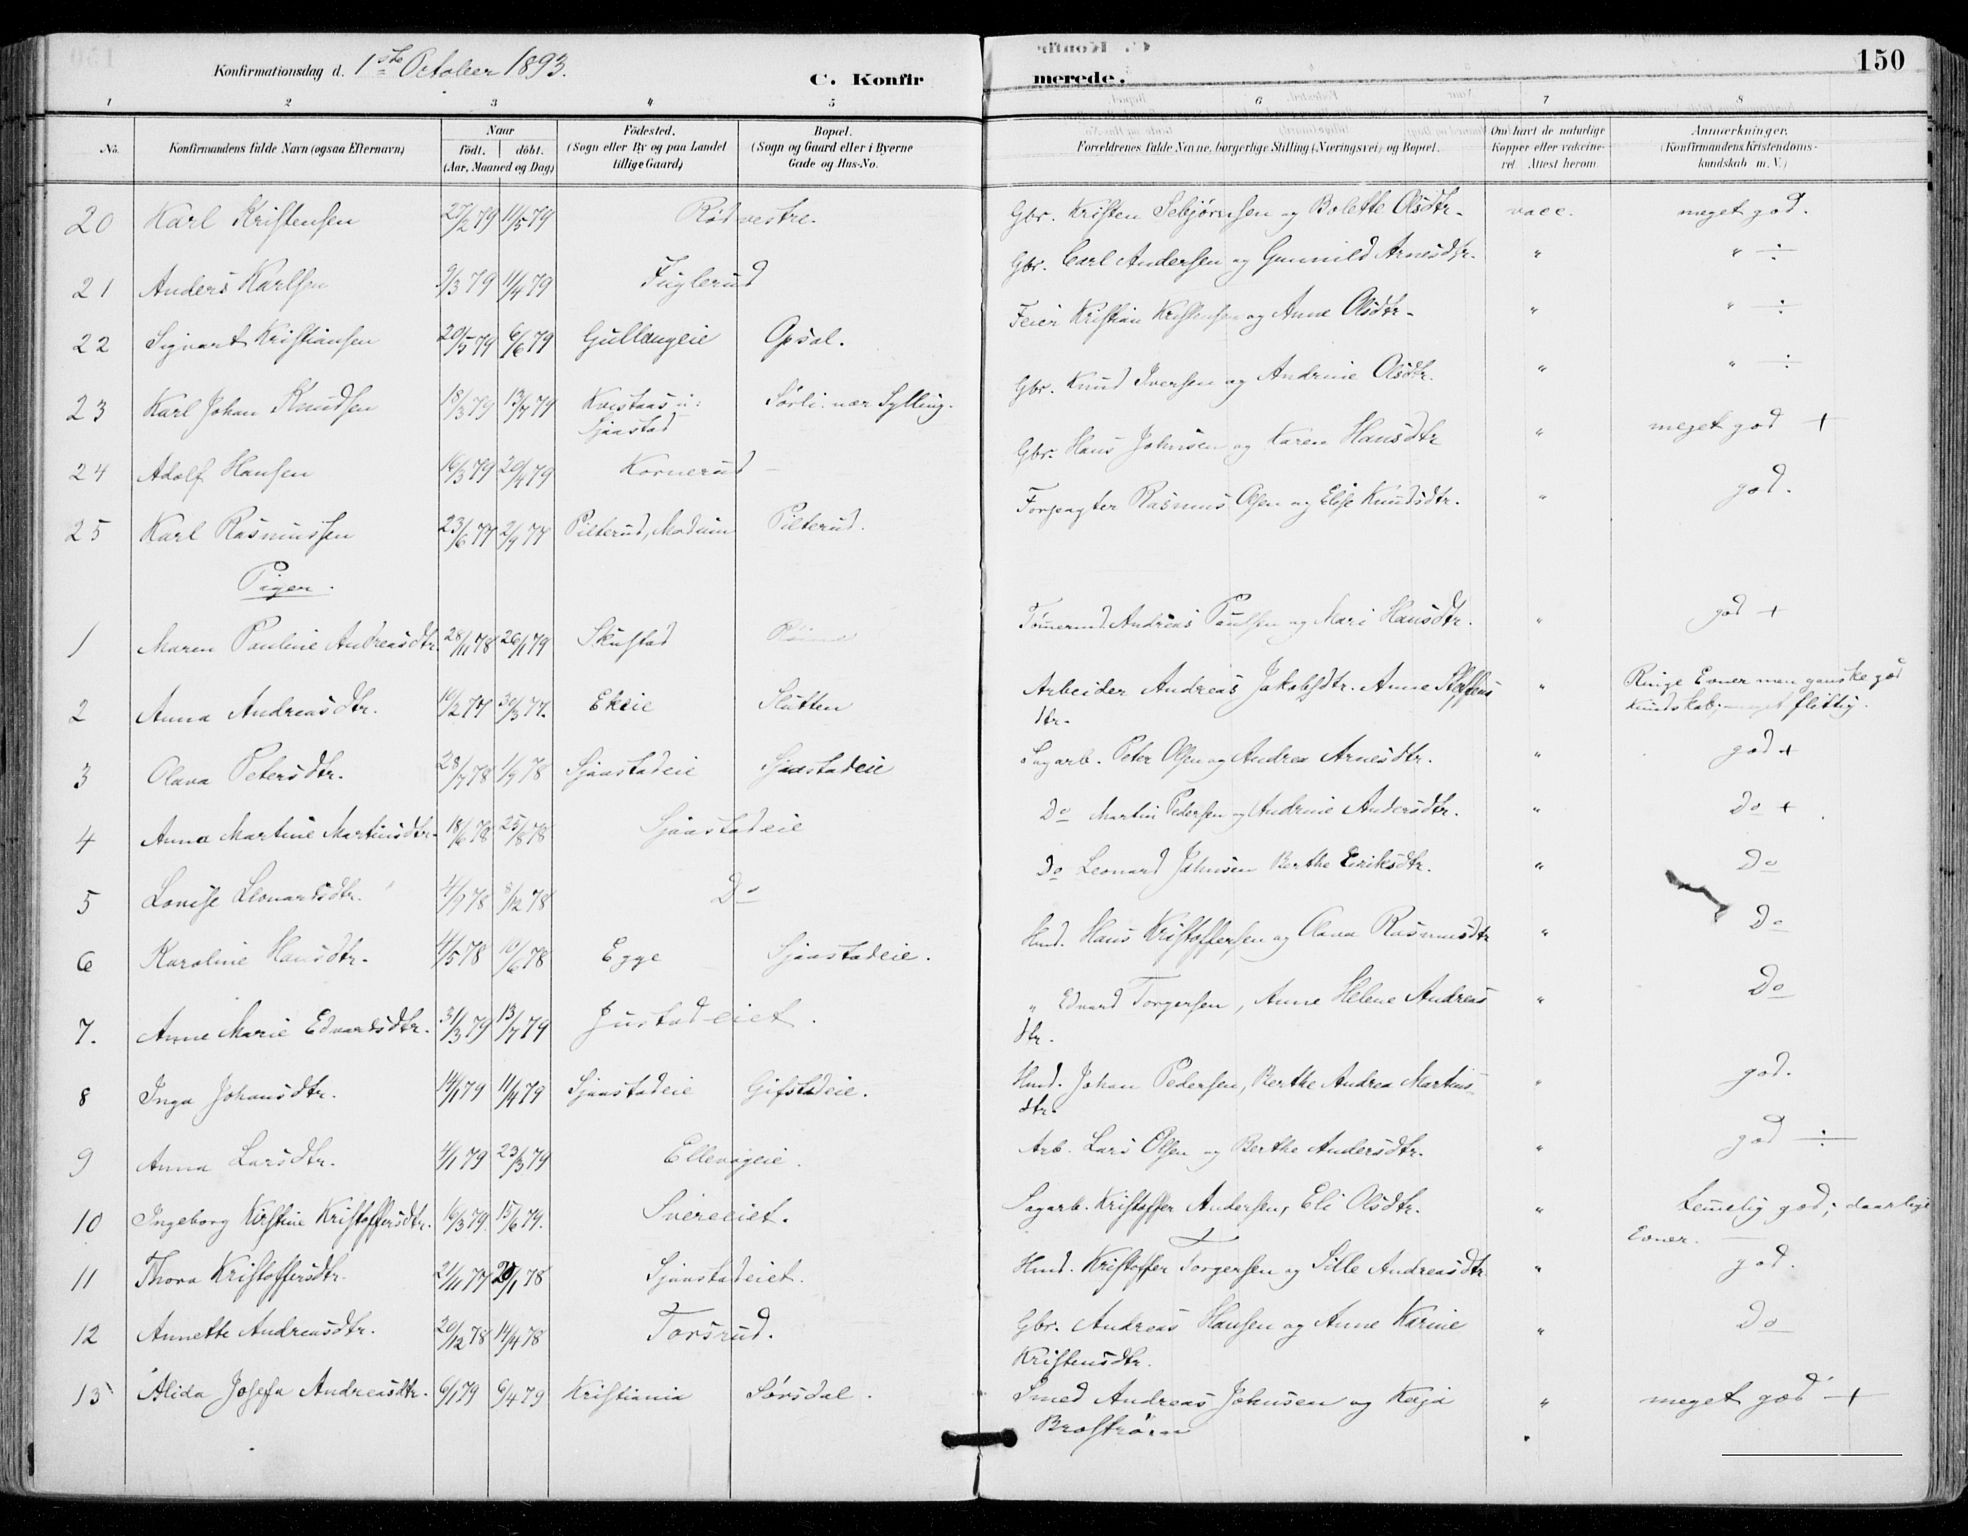 150
Konfirmationsdag d. 1ste October 1893.
C. Konfir merede.
1 2 3 4 5 6 7 8
No. Konfirmandens fulde Navn (ogsaa Efternavn) Naar født. døbt. (Aar, Maaned og Dag) Fødested. (Sogn eller By og paa Landet tillige Gaard) Bopæl. (Sogn og Gaard eller i Byerne Gade og Hus-No. Forældrenes fulde Navne, borgerlige Stilling (Næringsvei) og Bopæl. Om havt de naturlige Kopper eller vakcineret. Attest herom. Anmærkninger. (Konfirmandens Kristendomskundskab m. V.)
20 Karl Kristensen 27/2 79 11/5 79 Rød vestre. Gbr. Kristen Sebjørnsen og Bolette Olsdtr. vacc. meget god.
21 Anders Karlsen 9/3 79 11/4 79 Fuglerud Gbr. Carl Andersen og Gunnild Arnesdtr. " " ÷
22 Sigvart Kristiansen 20/5 79 6/6 79 Gullaugeie Opsal. Feier Kristian Kristensen og Anne Olsdtr. " " ÷
23 Karl Johan Knudsen 18/3 79 13/7 79 Kvistaas u: Sjaastad Sørli nær Sylling. Gbr. Knud Iversen og Andrine Olsdtr. " " ÷
24 Adolf Hansen 16/3 79 20/4 79 Kornerud Gbr. Hans Johnsen og Karen Hansdtr " meget god +
25 Karl Rasmussen 23/6 77 2/9 77 Pilterud, Modum Pilterud. Forpagter Rasmus Olsen og Elise Knudsdtr. " god.
Piger.
1 Maren Pauline Andreasdtr. 28/11 78 26/1 79 Skustad Tømmermd. Andreas Paulsen og Mari Hansdtr. " god +
2 Anna Andreasdtr. 10/2 77 30/3 77. Ekeie Slutten Arbeider Andreas Jakobsdtr. Anne Steffens dtr. " Ringe Evner men ganske god Kundskab; meget flittig.
3 Olava Petersdtr. 28/7 78 1/9 78 Sjaastadeie Sjaastadeie Sagarb. Peter Olsen og Andrea Arnesdtr. " god +
4 Anna Martine Martinsdtr. 18/6 78 25/8 78 Sjaastadeie Do Martin Pedersen og Andrine Andersdtr. " Do +
5 Lovise Leonardsdtr. 4/9 78 8/12 78 Do Do Leonard Johnsen Berthe Eriksdtr. " Do
6 Karoline Hansdtr. 4/5 78 10/6 78 Egge Sjaastadeie. Hmd. Hans Kristoffersen og Olava Rasmusdtr " Do
7. Anne Marie Edvardsdtr. 31/3 79 13/7 79 Justadeiet. " Edvard Torgersen, Anne Helene Andreas dtr. " Do
8 Inga Johansdtr. 14/1 79 11/4 79 Sjaastadeie Gifstadeie. Hmd. Johan Pedersen, Berthe Andrea Martins dtr. " god.
9 Anna Larsdtr. 4/1 79 23/3 79 Ellevogeie. Arb. Lars Olsen og Berthe Andersdtr. " god ÷
10 Ingeborg Kirstine Kristoffersdtr. 16/3 79. 15/6 79. Svereeiet. Sagarb. Kristoffer Andersen, Eli Olsdtr. " Temmelig god; daarlige Evner.
11 Thora Kristoffersdtr. 21/11 77 20/1 78 Sjaastadeiet. Hmd. Kristoffer Torgersen og Sille Andreasdtr " god.
12 Annette Andreasdtr. 20/12 78 14/4 78 Torsrud. Gbr. Andreas Hansen og Anne Karine Kristensdtr. " Do
13 Alida Josefa Andreasdtr. 6/1 79 6/4 79 Kristiania Sørsdal. Smed Andreas Johnsen og Kaja Brostrøm " meget god +